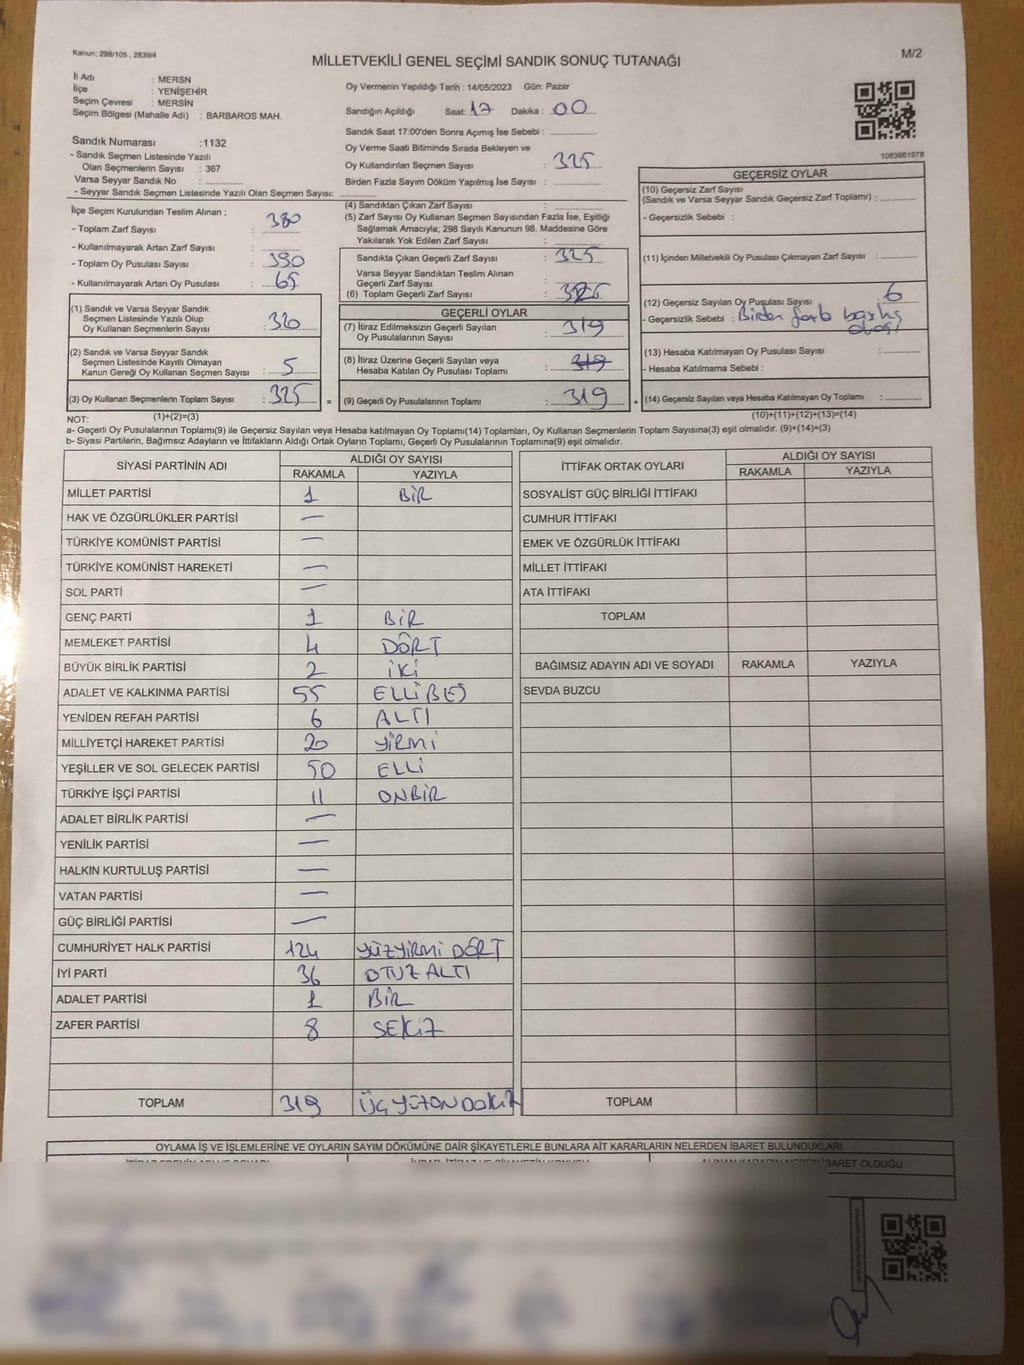 Kanun: 298/105 , 2839/4
M/2
MİLLETVEKİLİ GENEL SEÇİMİ SANDIK SONUÇ TUTANAĞI
İl Adı : MERSN
İlçe : YENİŞEHİR
Seçim Çevresi : MERSİN
Seçim Bölgesi (Mahalle Adı) : BARBAROS MAH.
Sandık Numarası :1132
- Sandık Seçmen Listesinde Yazılı
Olan Seçmenlerin Sayısı : 367
Varsa Seyyar Sandık No :
- Seyyar Sandık Seçmen Listesinde Yazılı Olan Seçmen Sayısı:
Oy Vermenin Yapıldığı Tarih : 14/05/2023 Gün: Pazar
Sandığın Açıldığı Saat: 17 Dakika : 00
Sandık Saat 17:00'den Sonra Açmış İse Sebebi :
Oy Verme Saati Bitiminde Sırada Bekleyen ve
Oy Kullandırılan Seçmen Sayısı : 325
Birden Fazla Sayım Döküm Yapılmış İse Sayısı :
1083661978
İlçe Seçim Kurulundan Teslim Alınan ;
- Toplam Zarf Sayısı : 380
- Kullanılmayarak Artan Zarf Sayısı :
- Toplam Oy Pusulası Sayısı : 390
- Kullanılmayarak Artan Oy Pusulası : 65
(1) Sandık ve Varsa Seyyar Sandık
Seçmen Listesinde Yazılı Olup
Oy Kullanan Seçmenlerin Sayısı : 320
(2) Sandık ve Varsa Seyyar Sandık
Seçmen Listesinde Kayıtlı Olmayan
Kanun Gereği Oy Kullanan Seçmen Sayısı : 5
(3) Oy Kullanan Seçmenlerin Toplam Sayısı : 325 =
(4) Sandıktan Çıkan Zarf Sayısı :
(5) Zarf Sayısı Oy Kullanan Seçmen Sayısından Fazla İse, Eşitliği
Sağlamak Amacıyla; 298 Sayılı Kanunun 98. Maddesine Göre
Yakılarak Yok Edilen Zarf Sayısı :
Sandıkta Çıkan Geçerli Zarf Sayısı : 325
Varsa Seyyar Sandıktan Teslim Alınan
Geçerli Zarf Sayısı :
(6) Toplam Geçerli Zarf Sayısı : 325
GEÇERLİ OYLAR
(7) İtiraz Edilmeksizin Geçerli Sayılan
Oy Pusulalarının Sayısı : 319
(8) İtiraz Üzerine Geçerli Sayılan veya
Hesaba Katılan Oy Pusulası Toplamı : 319
(9) Geçerli Oy Pusulalarının Toplamı : 319 +
GEÇERSİZ OYLAR
(10) Geçersiz Zarf Sayısı
(Sandık ve Varsa Seyyar Sandık Geçersiz Zarf Toplamı) :
- Geçersizlik Sebebi :
(11) İçinden Milletvekili Oy Pusulası Çıkmayan Zarf Sayısı :
(12) Geçersiz Sayılan Oy Pusulası Sayısı : 6
- Geçersizlik Sebebi : Birden
(13) Hesaba Katılmayan Oy Pusulası Sayısı :
- Hesaba Katılmama Sebebi :
(14) Geçersiz Sayılan veya Hesaba Katılmayan Oy Toplamı :
NOT: (1)+(2)=(3) (10)+(11)+(12)+(13)=(14)
a- Geçerli Oy Pusulalarının Toplamı(9) ile Geçersiz Sayılan veya Hesaba katılmayan Oy Toplamı(14) Toplamları, Oy Kullanan Seçmenlerin Toplam Sayısına(3) eşit olmalıdır. (9)+(14)=(3)
b- Siyasi Partilerin, Bağımsız Adayların ve İttifakların Aldığı Ortak Oyların Toplamı, Geçerli Oy Pusulalarının Toplamına(9) eşit olmalıdır.
SİYASİ PARTİNİN ADI ALDIĞI OY SAYISI
RAKAMLA YAZIYLA
MİLLET PARTİSİ 1 BİR
HAK VE ÖZGÜRLÜKLER PARTİSİ —
TÜRKİYE KOMÜNİST PARTİSİ —
TÜRKİYE KOMÜNİST HAREKETİ —
SOL PARTİ —
GENÇ PARTİ 1 BİR
MEMLEKET PARTİSİ 4 DÖRT
BÜYÜK BİRLİK PARTİSİ 2 İKİ
ADALET VE KALKINMA PARTİSİ 55 ELLİBEŞ
YENİDEN REFAH PARTİSİ 6 ALTI
MİLLİYETÇİ HAREKET PARTİSİ 20 YİRMİ
YEŞİLLER VE SOL GELECEK PARTİSİ 50 ELLİ
TÜRKİYE İŞÇİ PARTİSİ 11 ONBİR
ADALET BİRLİK PARTİSİ —
YENİLİK PARTİSİ —
HALKIN KURTULUŞ PARTİSİ —
VATAN PARTİSİ —
GÜÇ BİRLİĞİ PARTİSİ —
CUMHURİYET HALK PARTİSİ 124 YÜZYİRMİ DÖRT
İYİ PARTİ 36 OTUZ ALTI
ADALET PARTİSİ 1 BİR
ZAFER PARTİSİ 8 SEKİZ
TOPLAM 319 ÜÇYÜZONDOKUZ
İTTİFAK ORTAK OYLARI ALDIĞI OY SAYISI
RAKAMLA YAZIYLA
SOSYALİST GÜÇ BİRLİĞİ İTTİFAKI
CUMHUR İTTİFAKI
EMEK VE ÖZGÜRLÜK İTTİFAKI
MİLLET İTTİFAKI
ATA İTTİFAKI
TOPLAM
BAĞIMSIZ ADAYIN ADI VE SOYADI RAKAMLA YAZIYLA
SEVDA BUZCU
TOPLAM
OYLAMA İŞ VE İŞLEMLERİNE VE OYLARIN SAYIM DÖKÜMÜNE DAİR ŞİKAYETLERLE BUNLARA AİT KARARLARIN NELERDEN İBARET BULUNDUKLARI